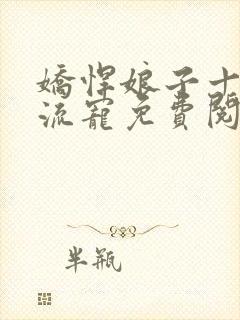 嬌悍娘子十
流寵免費閱
半瓶